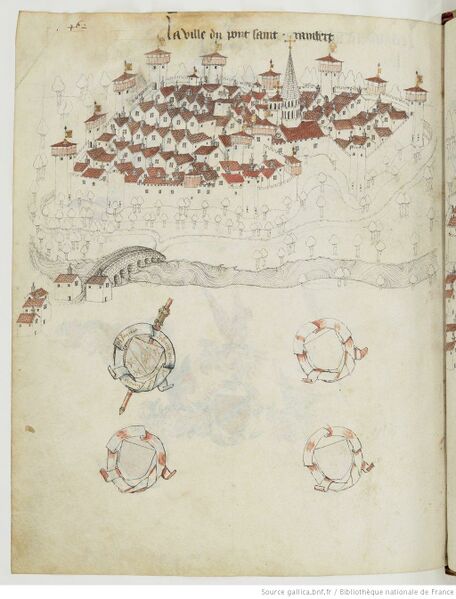 462
La ville du pont saint rambert
Source gallica.bnf.fr / Bibliothèque nationale de France